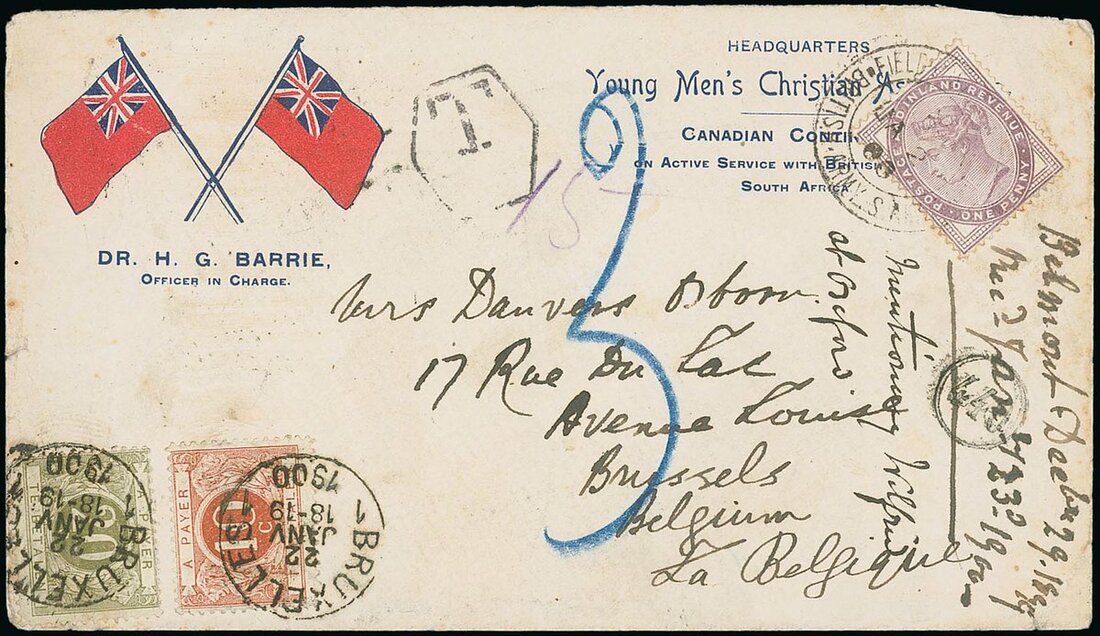 HEADQUARTERS
Young Men's Christian As
CANADIAN CONTIN
ON ACTIVE SERVICE WITH BRITISH
SOUTH AFRICA
DR. H. G. BARRIE,
OFFICER IN CHARGE.
T
15
3
FIELD
POSTAGE AND INLAND REVENUE
ONE PENNY
Mrs Danvers Osborn
17 Rue Du Lac
Avenue Louise
Brussels
Belgium
La Belgique
Belmont Decbr 29.
mentioning Wilfrid
at Oxford
A PAYER
TE BETALEN
20
BRUXELLES 1
JANV
18-19
1900
A PAYER
10 c.
BRUXELLES 1
22
JANV
18-19
1900